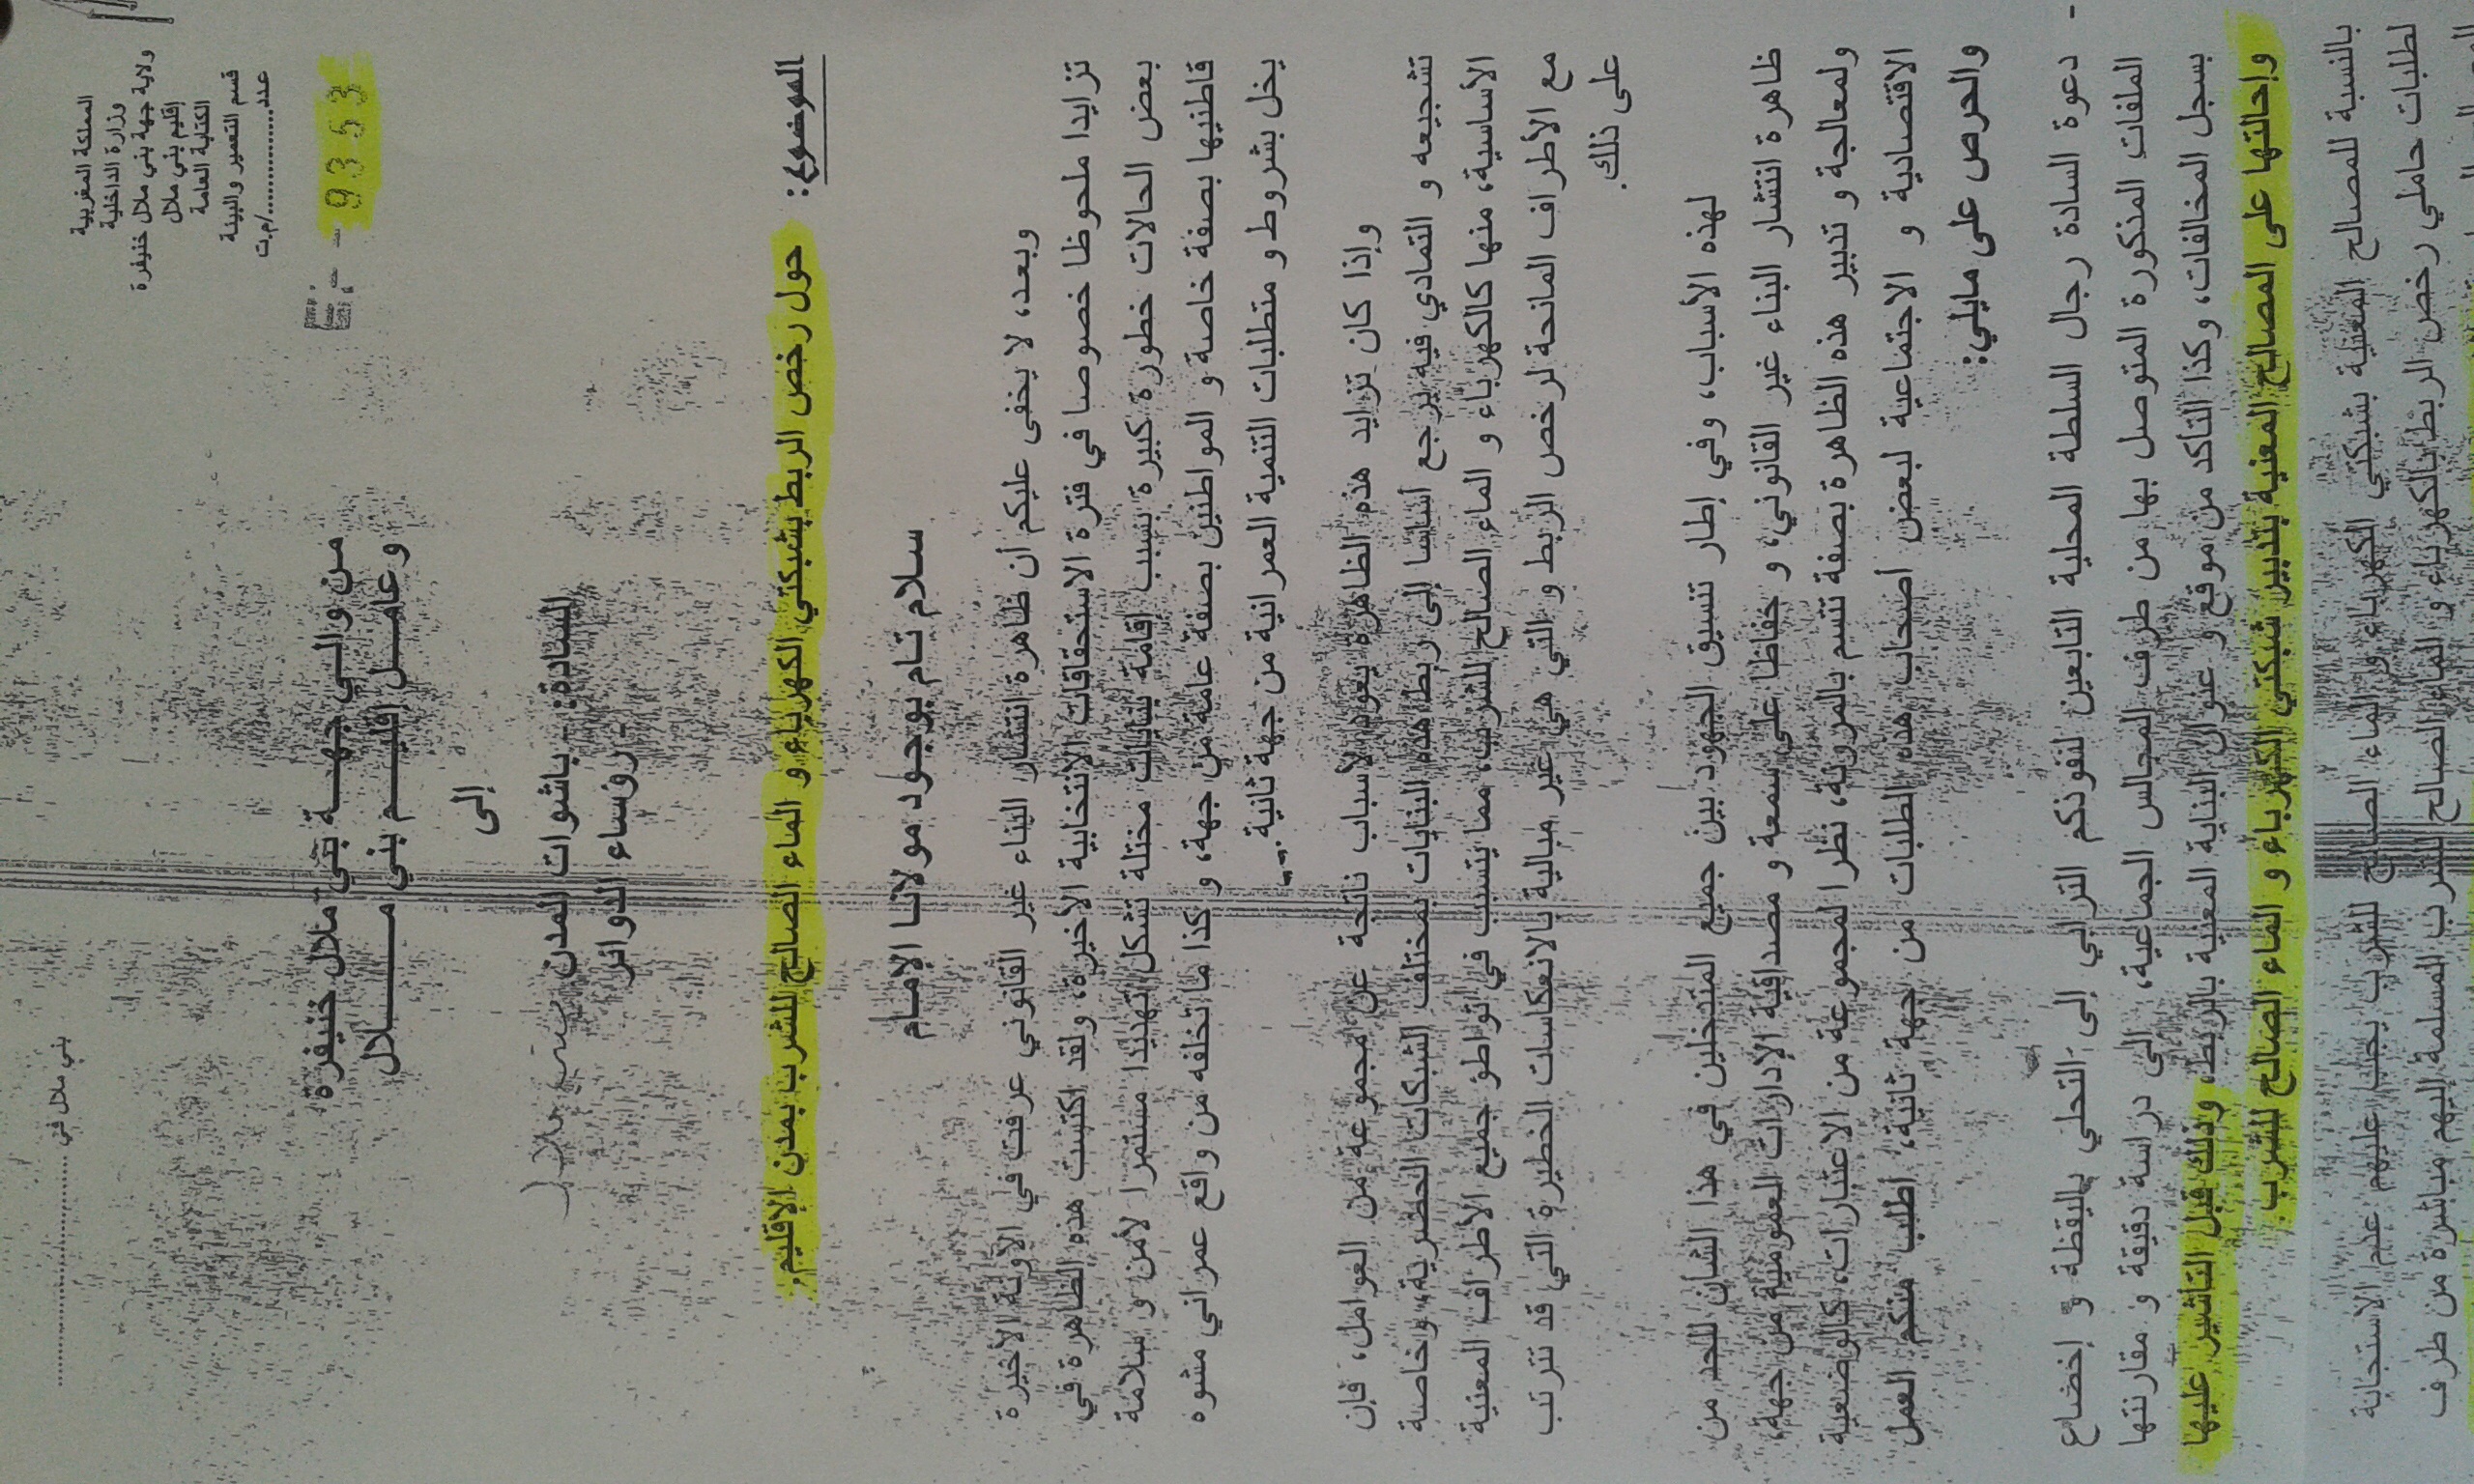 المملكة المغربية
وزارة الداخلية
ولاية جهة بني ملال خنيفرة
إقليم بني ملال
الكتابة العامة
قسم التعمير والبيئة
عدد................/م.ت
9353
بني ملال في ................................
من والـــي جهـــة بني ملال خنيفرة
وعامـــل إقليـــم بني مـــــــلال
إلى
السادة - باشوات المدن
- رؤساء الدوائر
الموضوع: حول رخص الربط بشبكتي الكهرباء و الماء الصالح للشرب بمدن الإقليم.
سلام تـام بوجـود مولانـا الإمـام
وبعد، لا يخفى عليكم أن ظاهرة انتشار البناء غير القانوني عرفت في الآونة الأخيرة
تزايدا ملحوظا خصوصا في فترة الاستحقاقات الانتخابية الأخيرة، ولقد اكتست هذه الظاهرة في
بعض الحالات خطورة كبيرة بسبب إقامة بنايات مختلة تشكل تهديدا مستمرا لأمن و سلامة
قاطنيها بصفة خاصة و المواطنين بصفة عامة من جهة، و كذا ما تخلفه من واقع عمراني مشوه
يخل بشروط و متطلبات التنمية العمرانية من جهة ثانية.
وإذا كان تزايد هذه الظاهرة يعود لأسباب ناتجة عن مجموعة من العوامل، فإن
تشجيعه و التمادي فيه يرجع أساسا إلى ربط هذه البنايات بمختلف الشبكات الحضرية، وخاصة
الأساسية، منها كالكهرباء و الماء الصالح للشرب، مما يتسبب في تواطؤ جميع الأطراف المعنية
مع الأطراف المانحة لرخص الربط و التي هي غير مبالية بالانعكاسات الخطيرة التي قد تترتب
على ذلك.
لهذه الأسباب، وفي إطار تنسيق الجهود بين جميع المتدخلين في هذا الشأن للحد من
ظاهرة انتشار البناء غير القانوني، و حفاظا على سمعة و مصداقية الإدارات العمومية من جهة،
ولمعالجة و تدبير هذه الظاهرة بصفة تتسم بالمرونة، نظرا لمجموعة من الاعتبارات، كالوضعية
الاقتصادية و الاجتماعية لبعض أصحاب هذه الطلبات من جهة ثانية، أطلب منكم العمل
والحرص على مايلي:
- دعوة السادة رجال السلطة المحلية التابعين لنفوذكم الترابي إلى التحلي باليقظة و إخضاع
الملفات المذكورة المتوصل بها من طرف المجالس الجماعية، إلى دراسة دقيقة و مقارنتها
بسجل المخالفات، وكذا التأكد من موقع و عنوان البناية المعنية بالربط، وذلك قبل التأشير عليها
وإحالتها على المصالح المعنية بتدبير شبكتي الكهرباء و الماء الصالح للشرب
بالنسبة للمصالح المعنية بشبكتي الكهرباء و الماء الصالح للشرب يجب عليهم عدم الاستجابة
لطلبات حاملي رخص الربط بالكهرباء و الماء الصالح للشرب المسلمة إليهم مباشرة من طرف